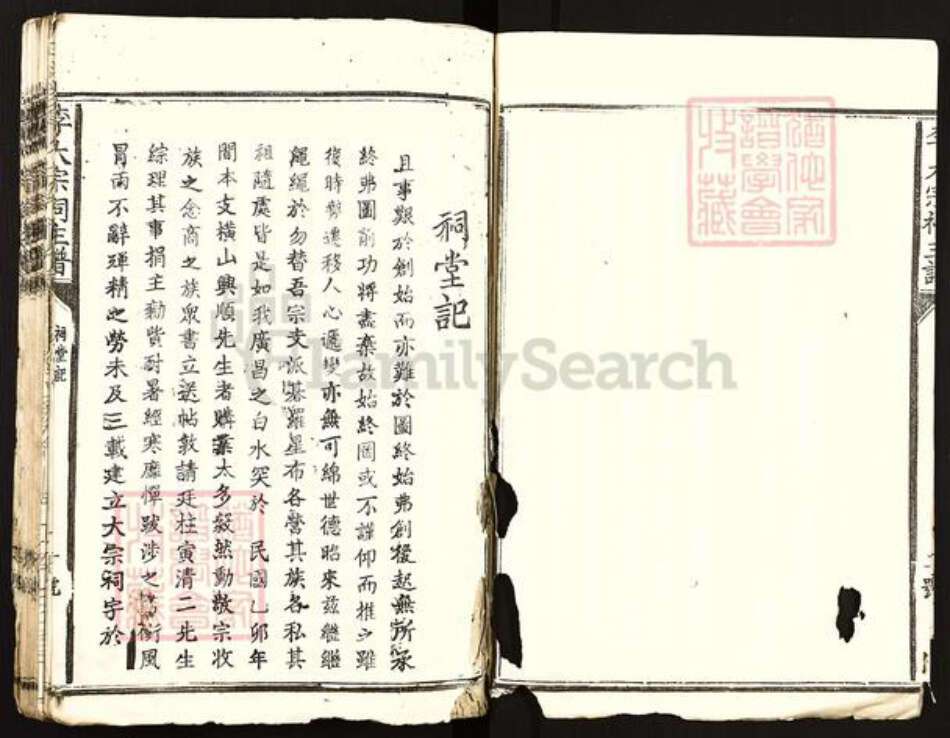 祠堂記
且事艱於創始而亦難於圖終始弗創後起無所承
終弗圖前功將盡棄故始終罔或不謹仰而推之雖
後時勢遷移人心遞變亦無可綿世德昭來茲繼繼
繩繩於勿替吾宗支派棊羅星布各營其族各私其
祖隨處皆是如我廣昌之白水突於民國乙卯年
間本支橫山興順先生者購業太多毅然動敬宗收
族之念商之族眾書立送帖敦請廷柱寅清二先生
綜理其事捐主勸貲耐暑經寒靡憚跋涉之 衝風
冒雨不辭殫精之勞未及三載建立大宗祠宇於
李大宗祠主譜
祠堂記
號
猶他家
譜學會
收藏
猶他家
譜學會
收藏
李大宗祠主譜
號
FamilySearch